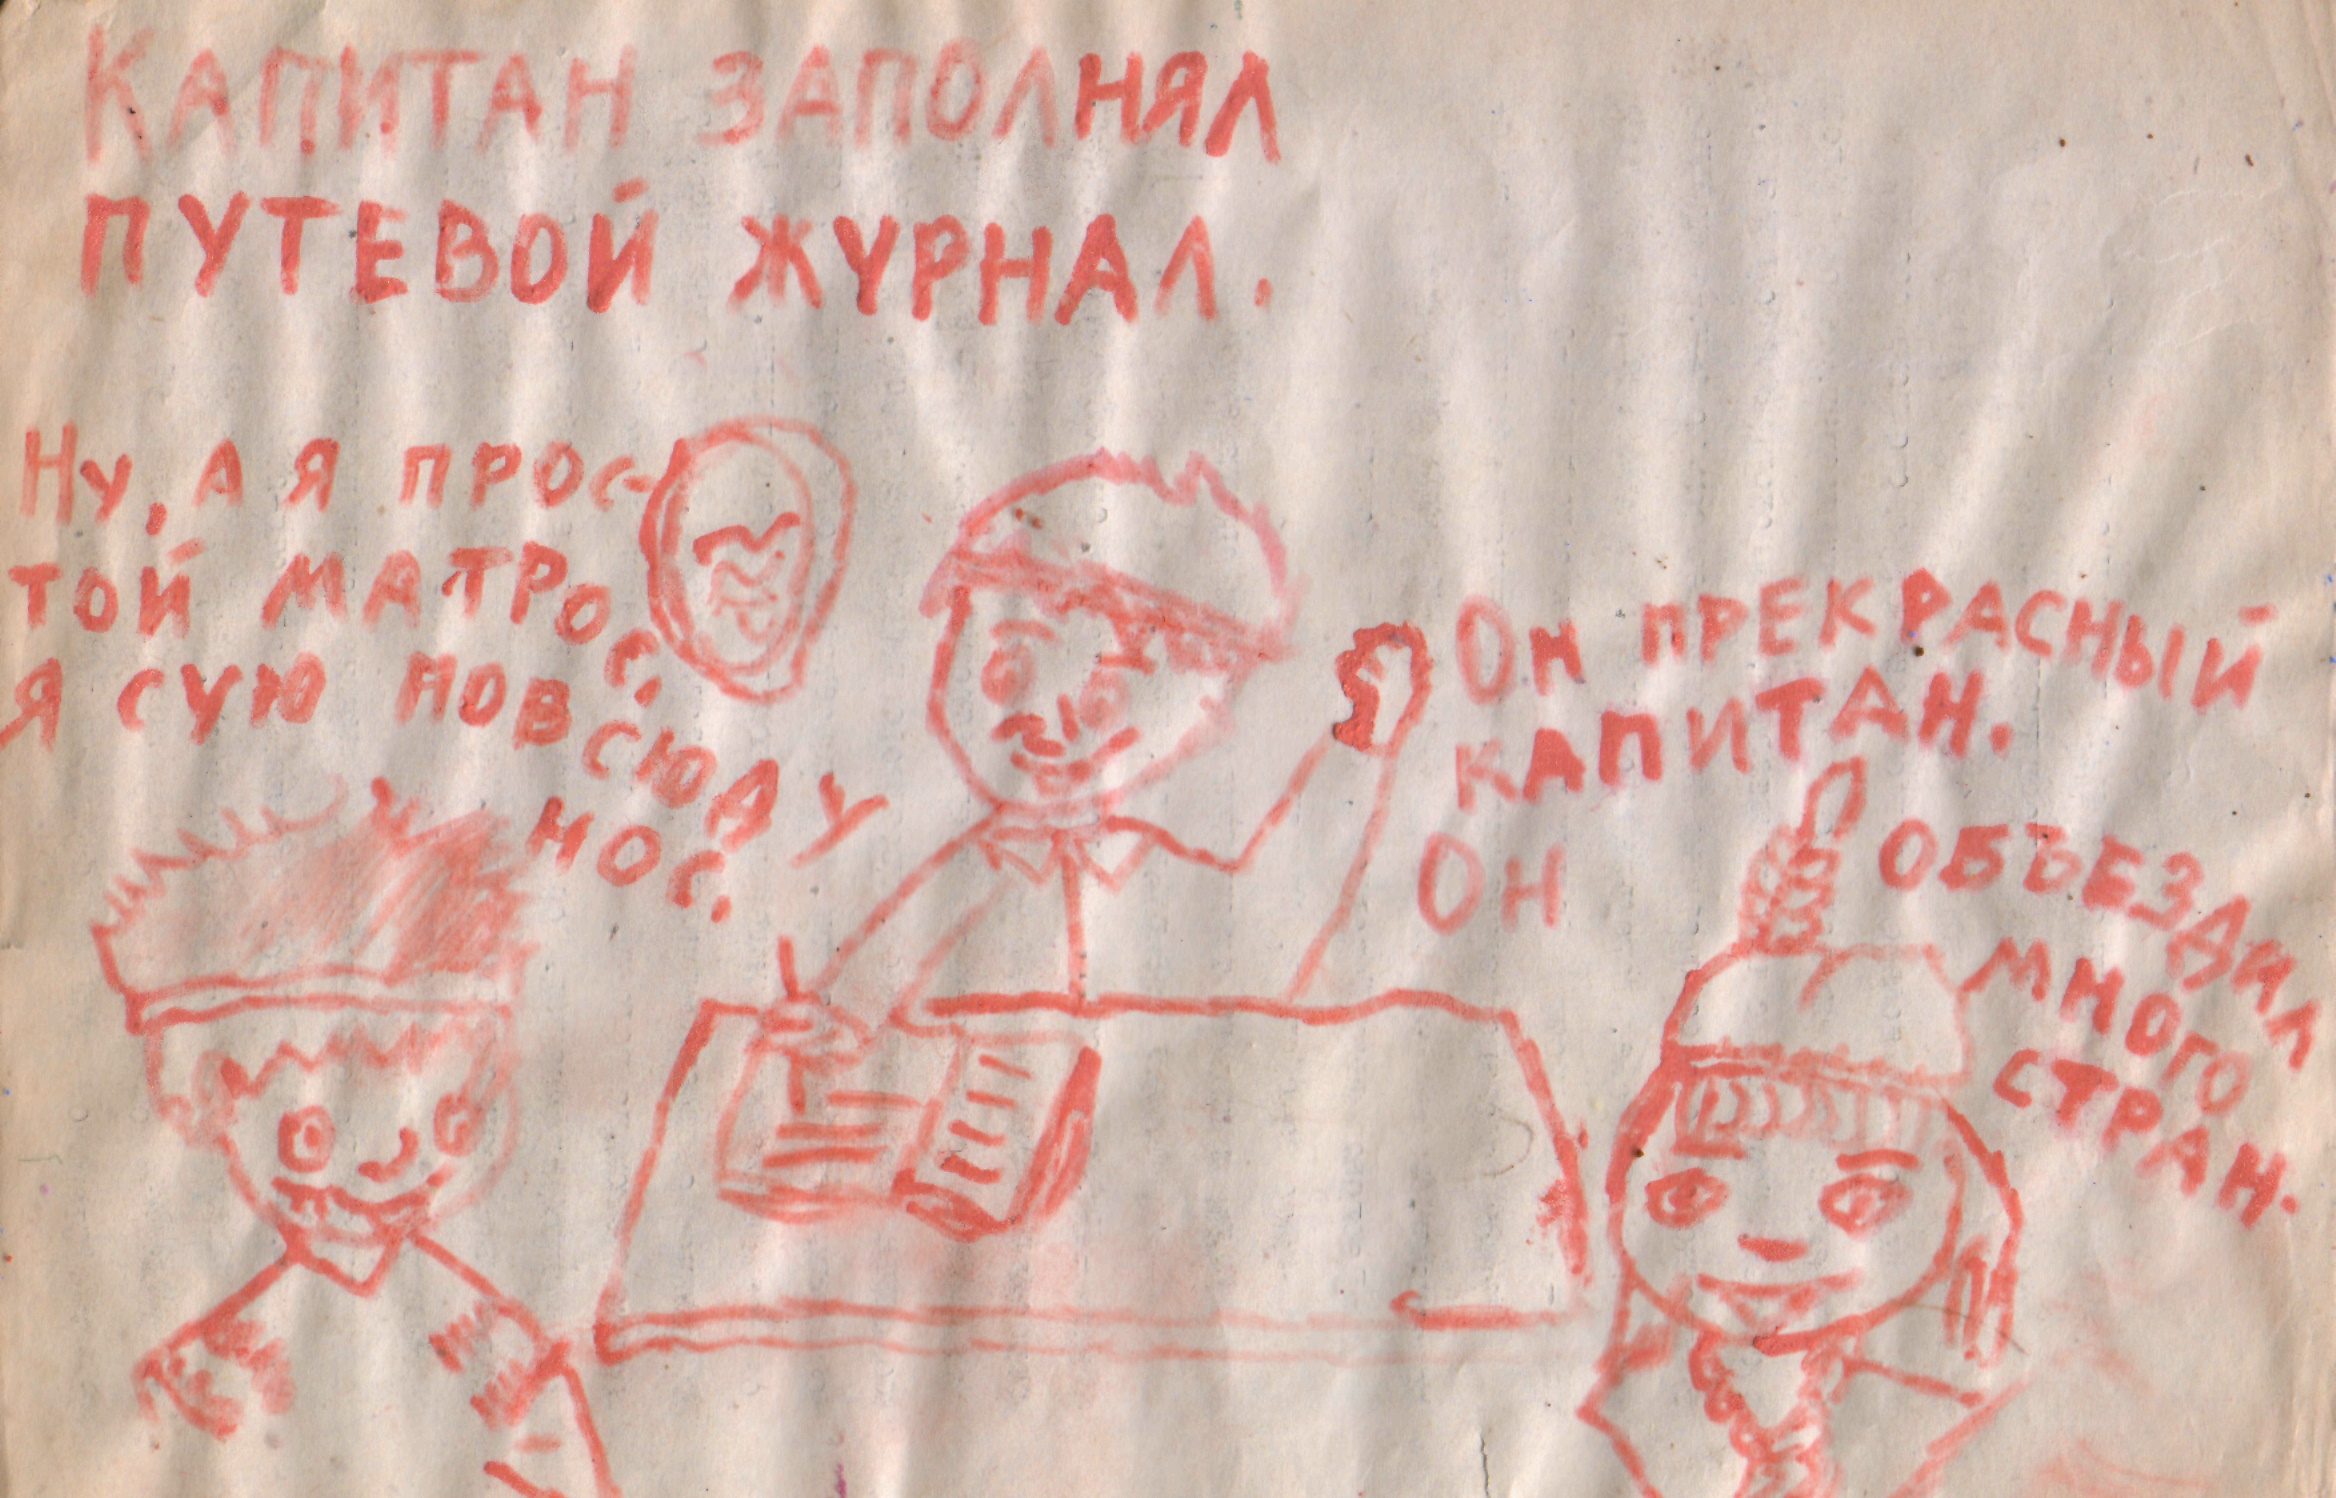 КАПИТАН ЗАПОЛНЯЛ
ПУТЕВОЙ ЖУРНАЛ.
Ну, а я прос-
той матрос.
Я сую повсюду
нос.
Он прекрасный
капитан.
Он объездил
много
стран.